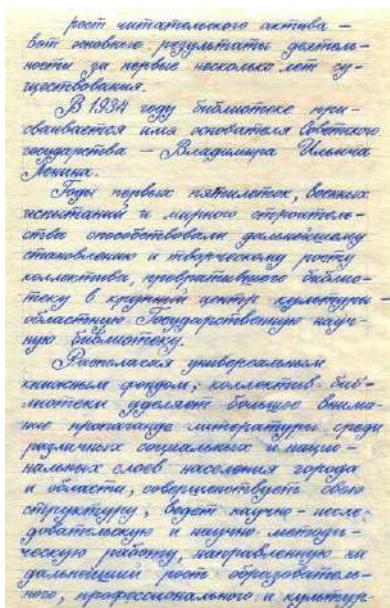 рост читательского актива —
вот основные результаты деятель-
ности за первые несколько лет су-
ществования.
В 1934 году библиотеке при-
сваивается имя основателя Советского
государства — Владимира Ильича
Ленина.
Годы первых пятилеток, военных
испытаний и мирного строитель-
ства способствовали дальнейшему
становлению и творческому росту
коллектива, превратившего библио-
теку в крупный центр культуры
областную Государственную науч-
ную библиотеку.
Располагая универсальным
книжным фондом, коллектив биб-
лиотеки уделяет большое внима-
ние пропаганде литературы среди
различных социальных и нацио-
нальных слоев населения города
и области, совершенствует свою
структуру, ведет научно-иссле-
довательскую и научно-методи-
ческую работу, направленную на
дальнейший рост образователь-
ного, профессионального и культур-